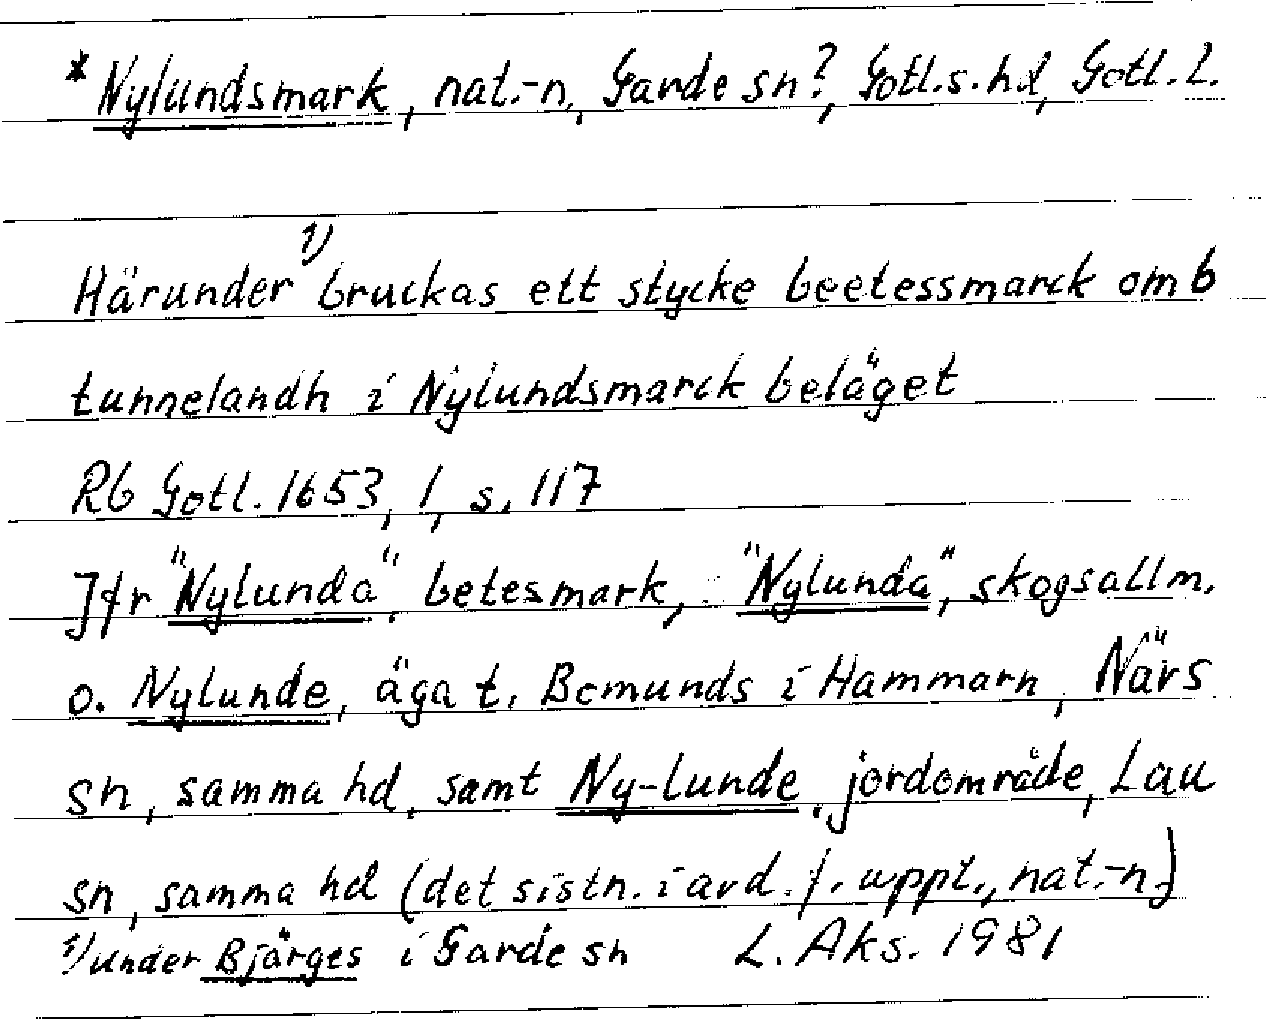 * Nylundsmark, nat.-n., Garde sn?, Gotl.s.hd, Gotl.l.
Härunder 1) bruckas ett stycke beetessmarck om 6
tunnelandh i Nylundsmarck beläget
Rb Gotl. 1653, 1, s. 117
Jfr "Nylunda", betesmark, "Nylunda", skogsallm.
o. Nylunde, äga t. Bomunds i Hammarn, När s
sn, samma hd, samt Ny-lunde, jordområde, Lau
sn, samma hd (det sistn. i avd. f. uppt., nat.-n.)
1) under Bjärges i Garde sn L. Aks. 1981